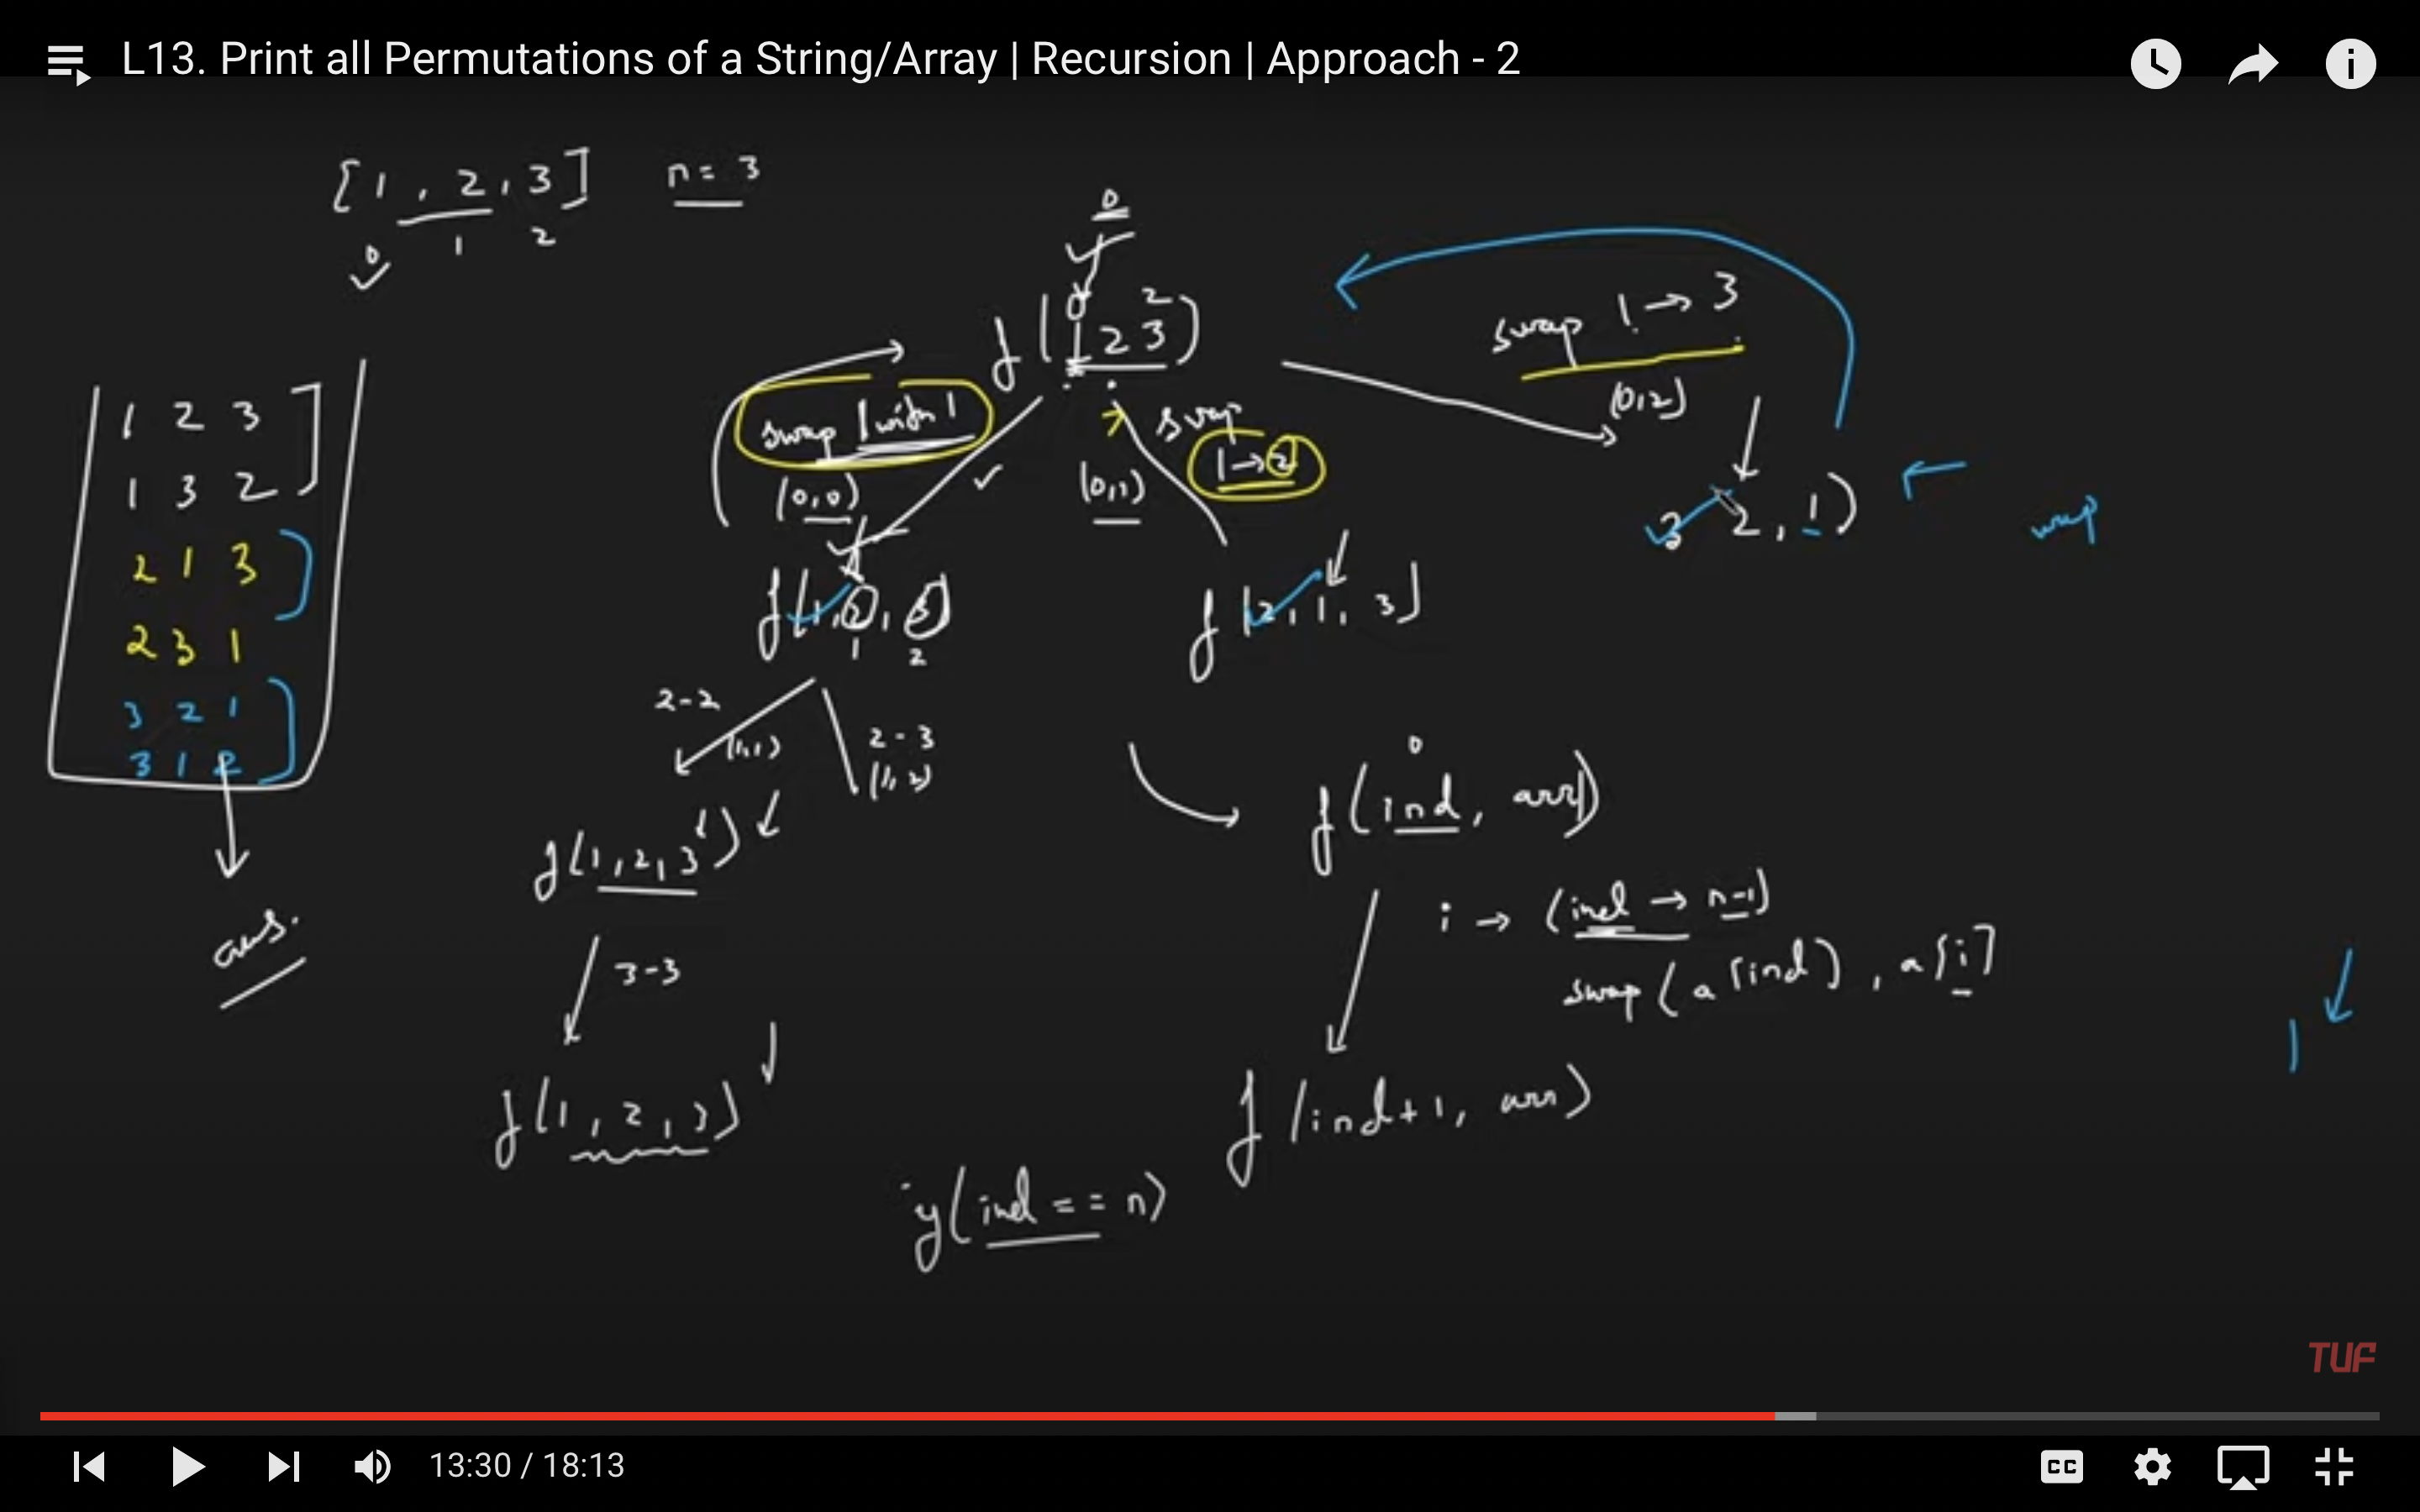 L13. Print all Permutations of a String/Array | Recursion | Approach - 2
[1, 2, 3] n = 3
0 1 2
0
0 2
f(1 2 3)
swap 1 → 3
(0,2)
swap 1 with 1
(0,0)
swap
1→2
(0,1)
3 2, 1)
1 2 3
1 3 2
2 1 3
2 3 1
3 2 1
3 1 2
ans.
f(1, 2, 3)
1 2
f(2, 1, 3)
2-2
(1,1)
2-3
(1,2)
f(1, 2, 3)
3-3
f(1, 2, 3)
0
f(ind, arr)
i → (ind → n-1)
swap(a[ind], a[i]
f(ind+1, arr)
if(ind == n)
TUF
13:30 / 18:13
CC